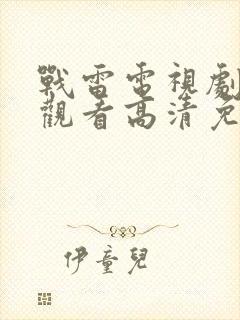 戰雷電視劇
觀看高清免
伊童兒